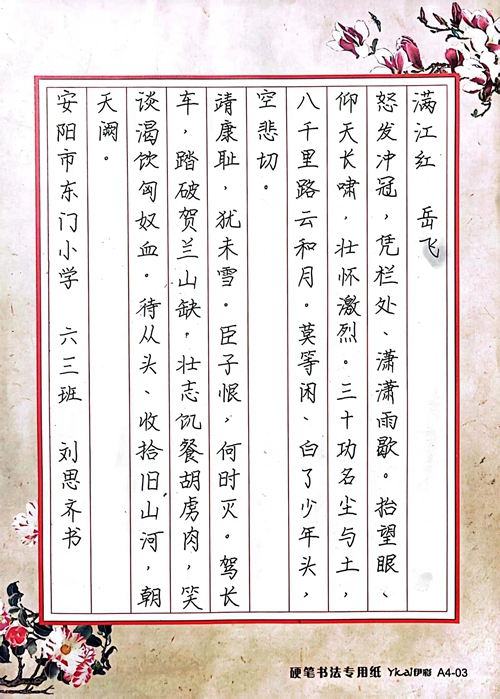 满江红 岳飞
怒发冲冠，凭栏处、潇潇雨歇。抬望眼、
仰天长啸，壮怀激烈。三十功名尘与土，
八千里路云和月。莫等闲、白了少年头，
空悲切。
靖康耻，犹未雪。臣子恨，何时灭。驾长
车，踏破贺兰山缺，壮志饥餐胡虏肉，笑
谈渴饮匈奴血。待从头、收拾旧山河，朝
天阙。
安阳市东门小学 六三班 刘思齐书
硬笔书法专用纸 Ykai伊彩 A4-03